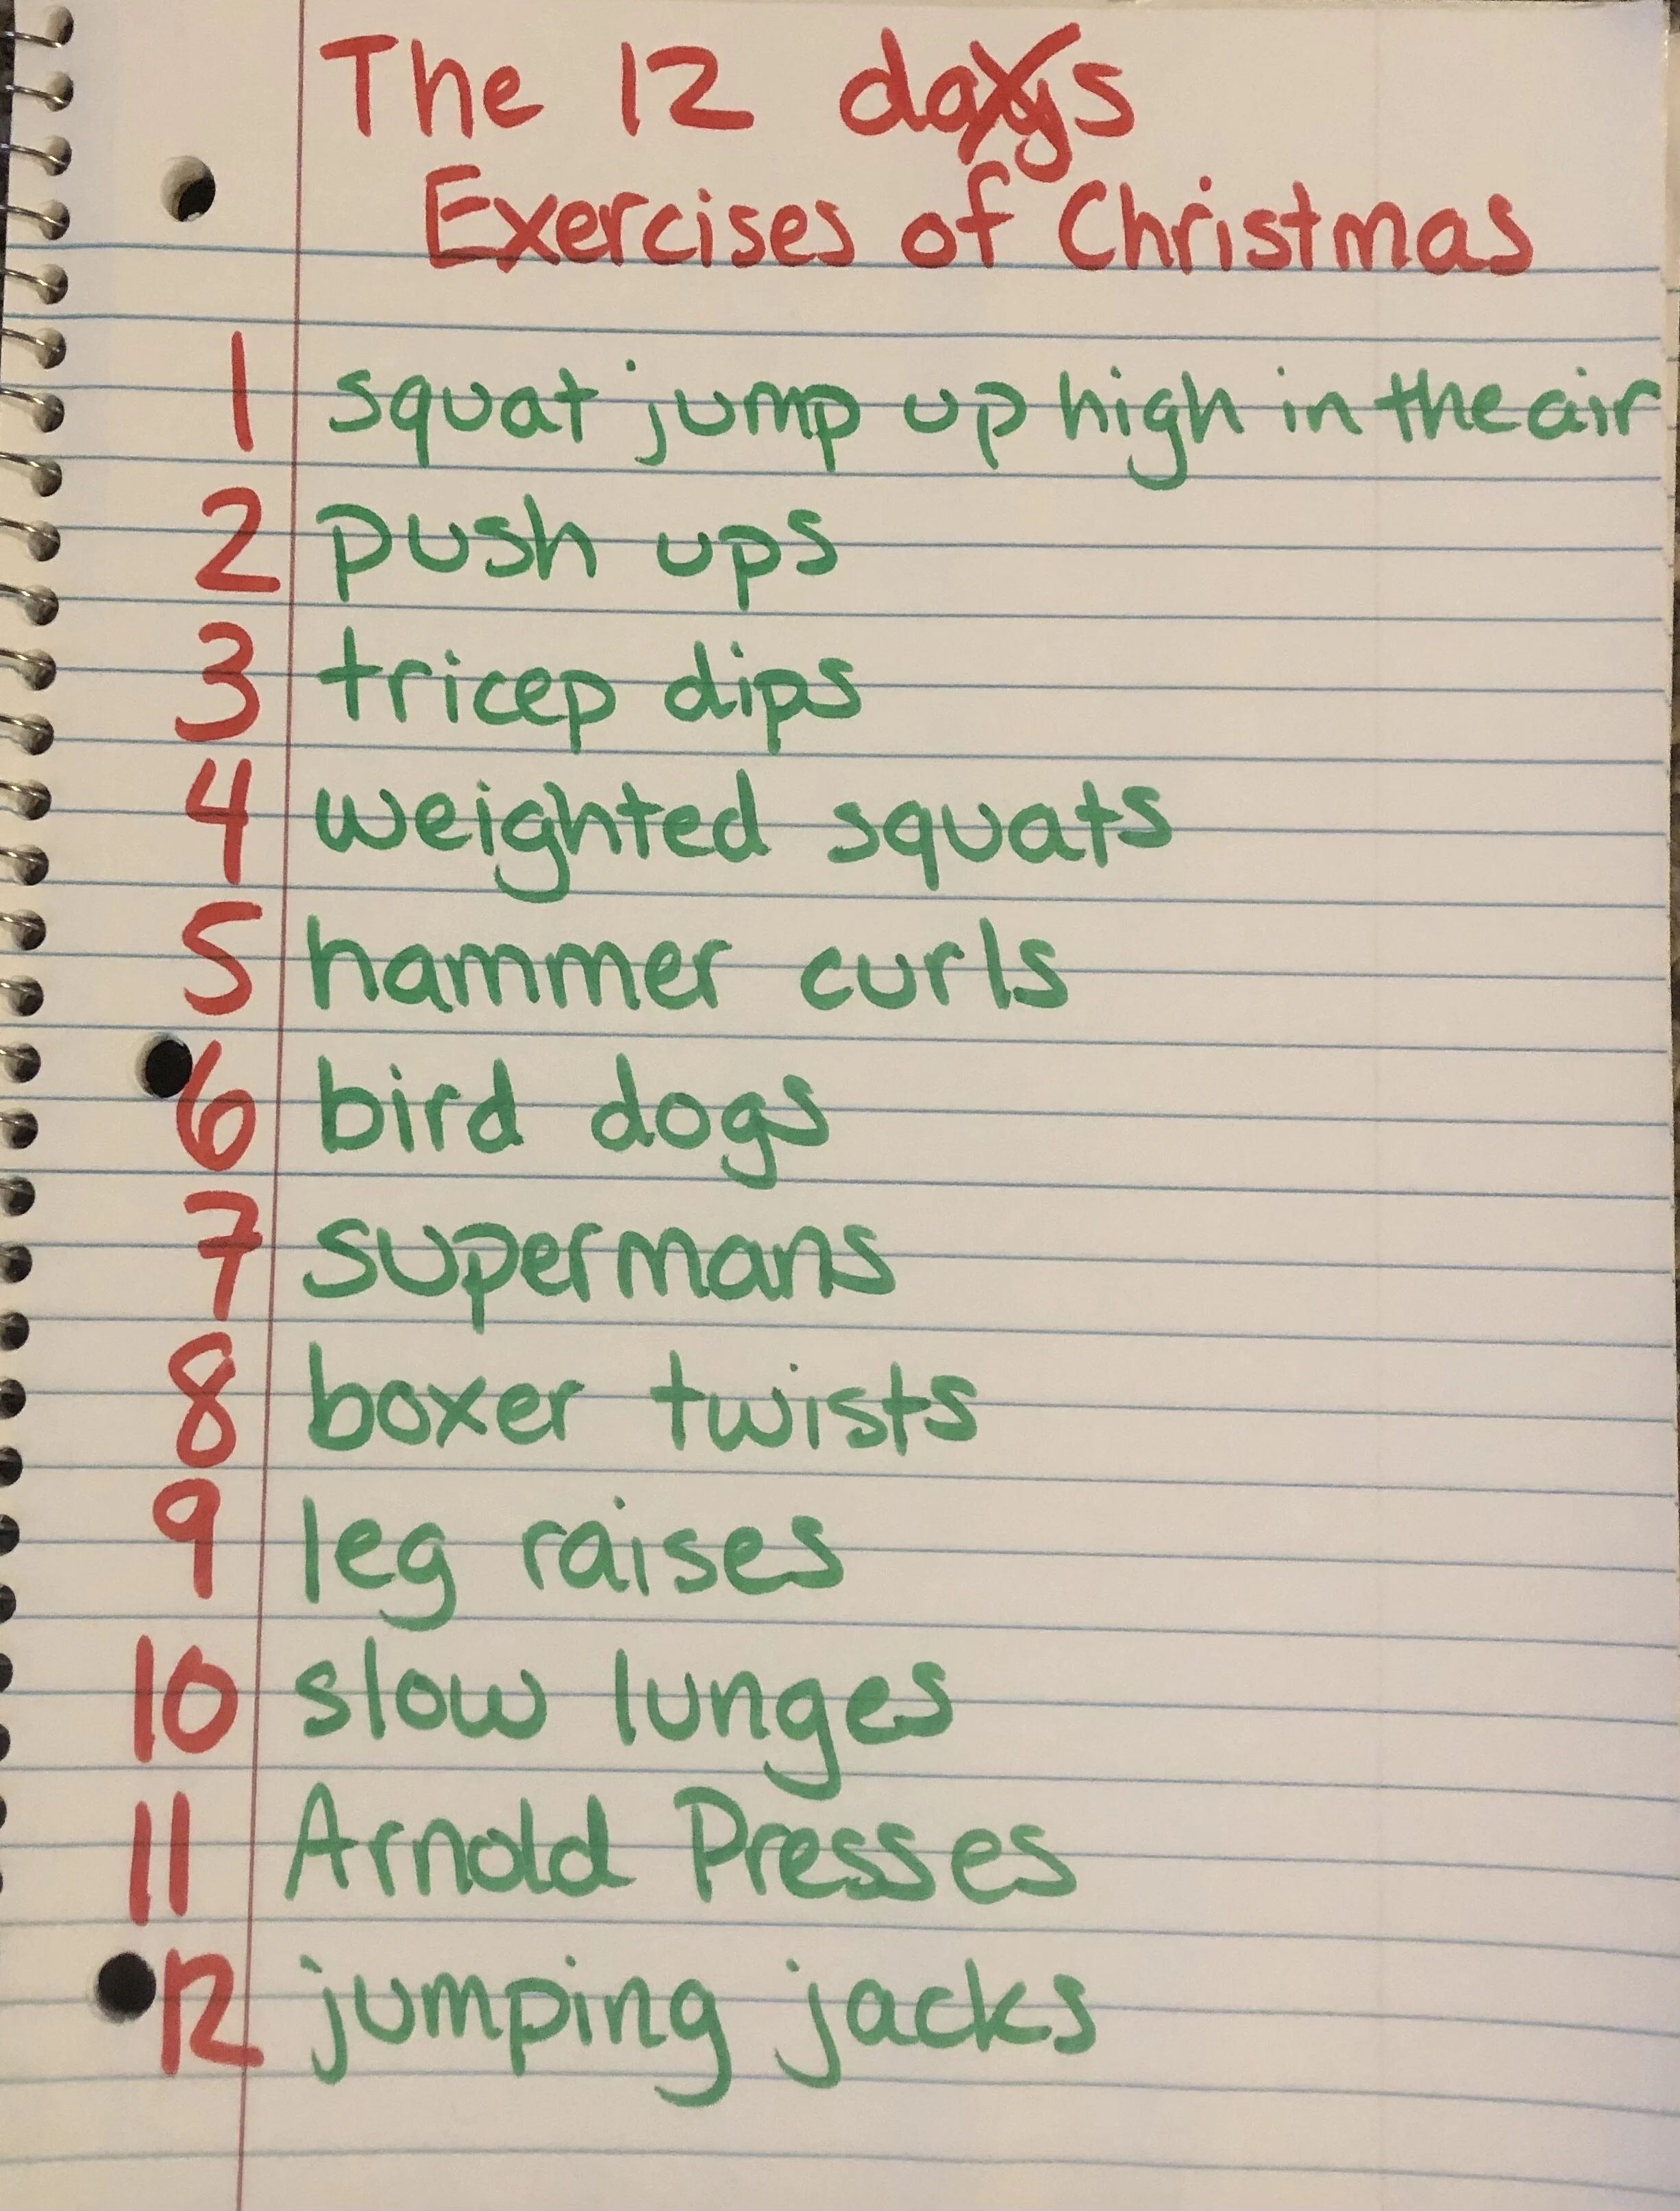 The 12 days
Exercises of Christmas
1 squat jump up high in the air
2 push ups
3 tricep dips
4 weighted squats
5 hammer curls
6 bird dogs
7 supermans
8 boxer twists
9 leg raises
10 slow lunges
11 Arnold Presses
12 jumping jacks